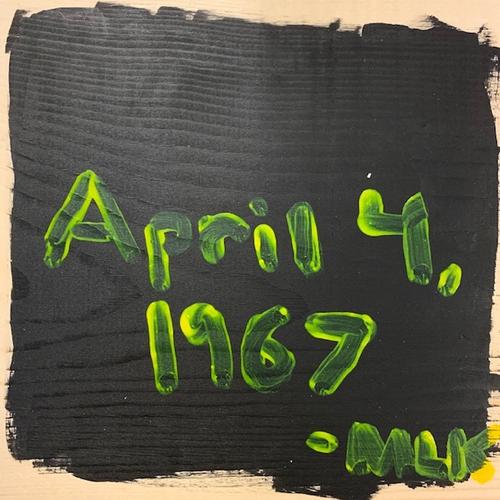 April 4,
1967
-MLK